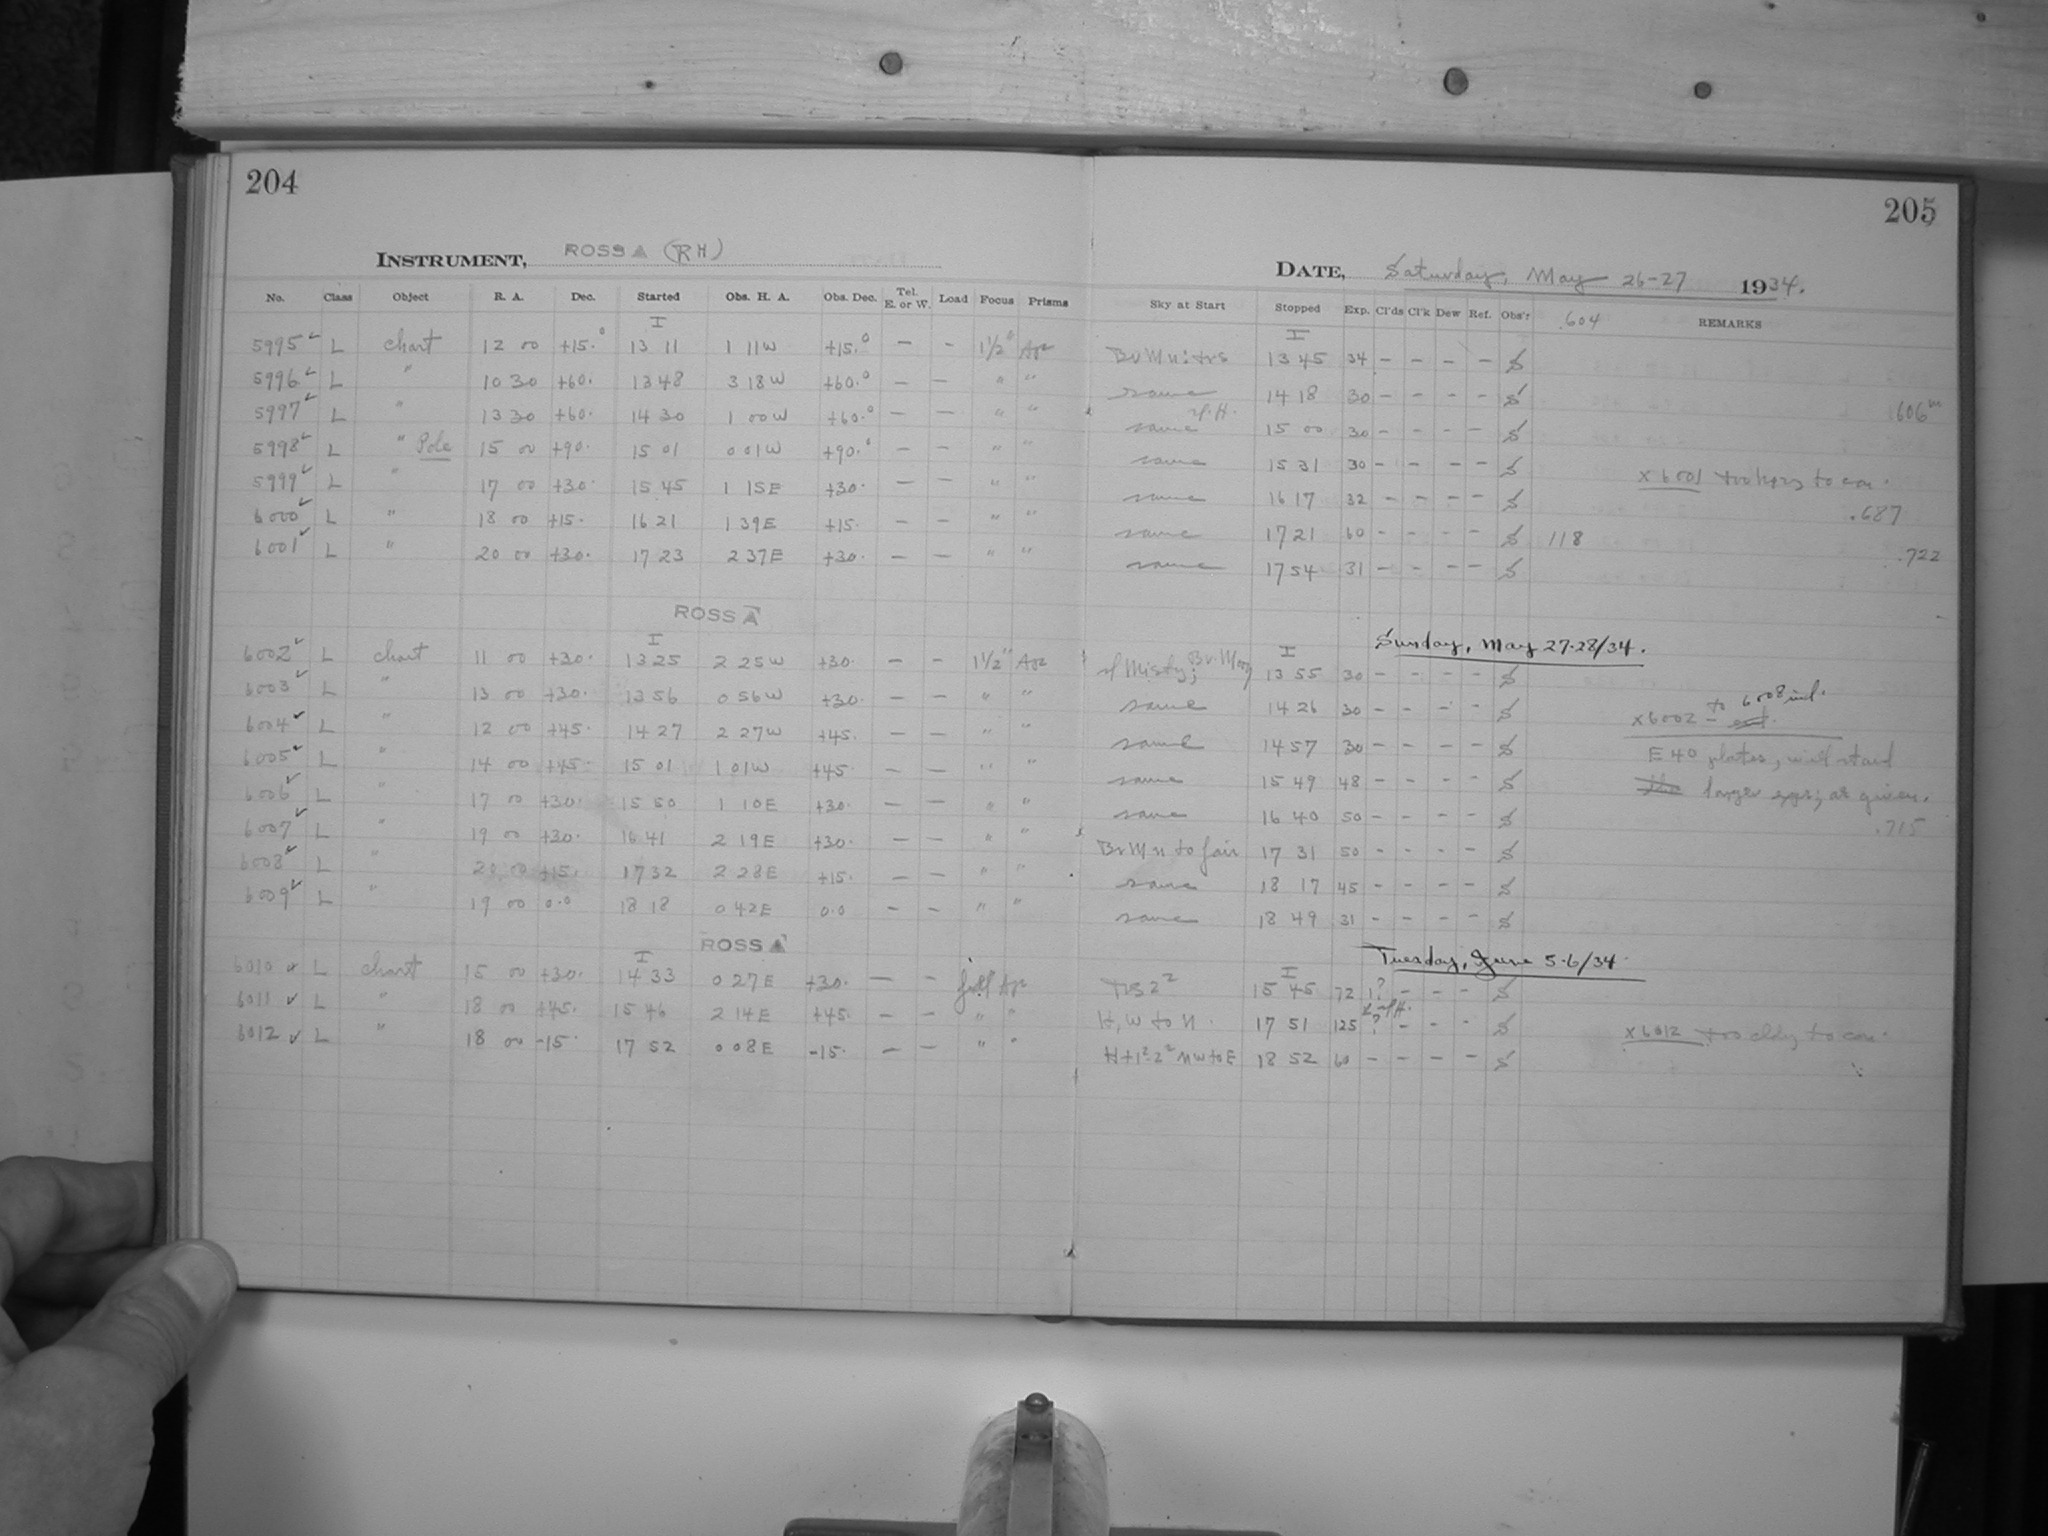 204
INSTRUMENT, ROSS A (RH)
No. Class Object R. A. Dec. Started Obs. H. A. Obs. Dec. Tel. E. or W. Load Focus Prisms
I
5995 ✓ L chart 12 00 +15.° 13 11 1 11W +15.° — - 1½" Apr
5996 ✓ L " 10 30 +60. 13 48 3 18W +60.° — — " "
5997 ✓ L " 13 30 +60. 14 30 1 00W +60.° — — " "
5998 ✓ L " Pole 15 00 +90. 15 01 0 01W +90.° — — " "
5999 ✓ L " 17 00 +30. 15 45 1 15E +30. — — " "
6000 ✓ L " 18 00 +15. 16 21 1 39E +15. — — " "
6001 ✓ L " 20 00 +30. 17 23 2 37E +30. — — " "
ROSS A
I
6002 ✓ L chart 11 00 +30. 13 25 2 25W +30. — — 1½" Apr
6003 ✓ L " 13 00 +30. 13 56 0 56W +30. — — " "
6004 ✓ L " 12 00 +45. 14 27 2 27W +45. — — " "
6005 ✓ L " 14 00 +45. 15 01 1 01W +45. — — " "
6006 ✓ L " 17 00 +30. 15 50 1 10E +30. — — " "
6007 ✓ L " 19 00 +30. 16 41 2 19E +30. — — " "
6008 ✓ L " 20 00 +15. 17 32 2 28E +15. — — " "
6009 ✓ L " 19 00 0.0 18 18 0 42E 0.0 — — " "
ROSS A
I
6010 ✓ L chart 15 00 +30. 14 33 0 27E +30. — — full Apr
6011 ✓ L " 18 00 +45. 15 46 2 14E +45. — — " "
6012 ✓ L " 18 00 -15. 17 52 0 08E -15. — — " "
205
DATE, Saturday, May 26-27 1934.
Sky at Start Stopped Exp. Cl'ds Cl'k Dew Ref. Obs'r .604 REMARKS
I
Br Mn: 13 45 34 - - - - S
same 14 18 30 - - - - S 606m
same 15 00 30 - - - - S
same 15 31 30 - - - - S x6001 to
same 16 17 32 - - - - S .687
same 17 21 60 - - - - S 118
same 17 54 31 - - - - S .722
Sunday, May 27-28/34.
I
Misty; Br. Moon 13 55 30 - - - - S
same 14 26 30 - - - - S x6002 to 6008 incl.
same 14 57 30 - - - - S E 40 plates, will stand
same 15 49 48 - - - - S longer exps; as given.
same 16 40 50 - - - - S .715
Br Mn to fair 17 31 50 - - - - S
same 18 17 45 - - - - S
same 18 49 31 - - - - S
Tuesday, June 5-6/34.
I
15 45 72 1? - - - S
H, W to N. 17 51 125 ? - - - S
H+1²-2² NW to E 18 52 60 - - - - S x6012 too cldy to